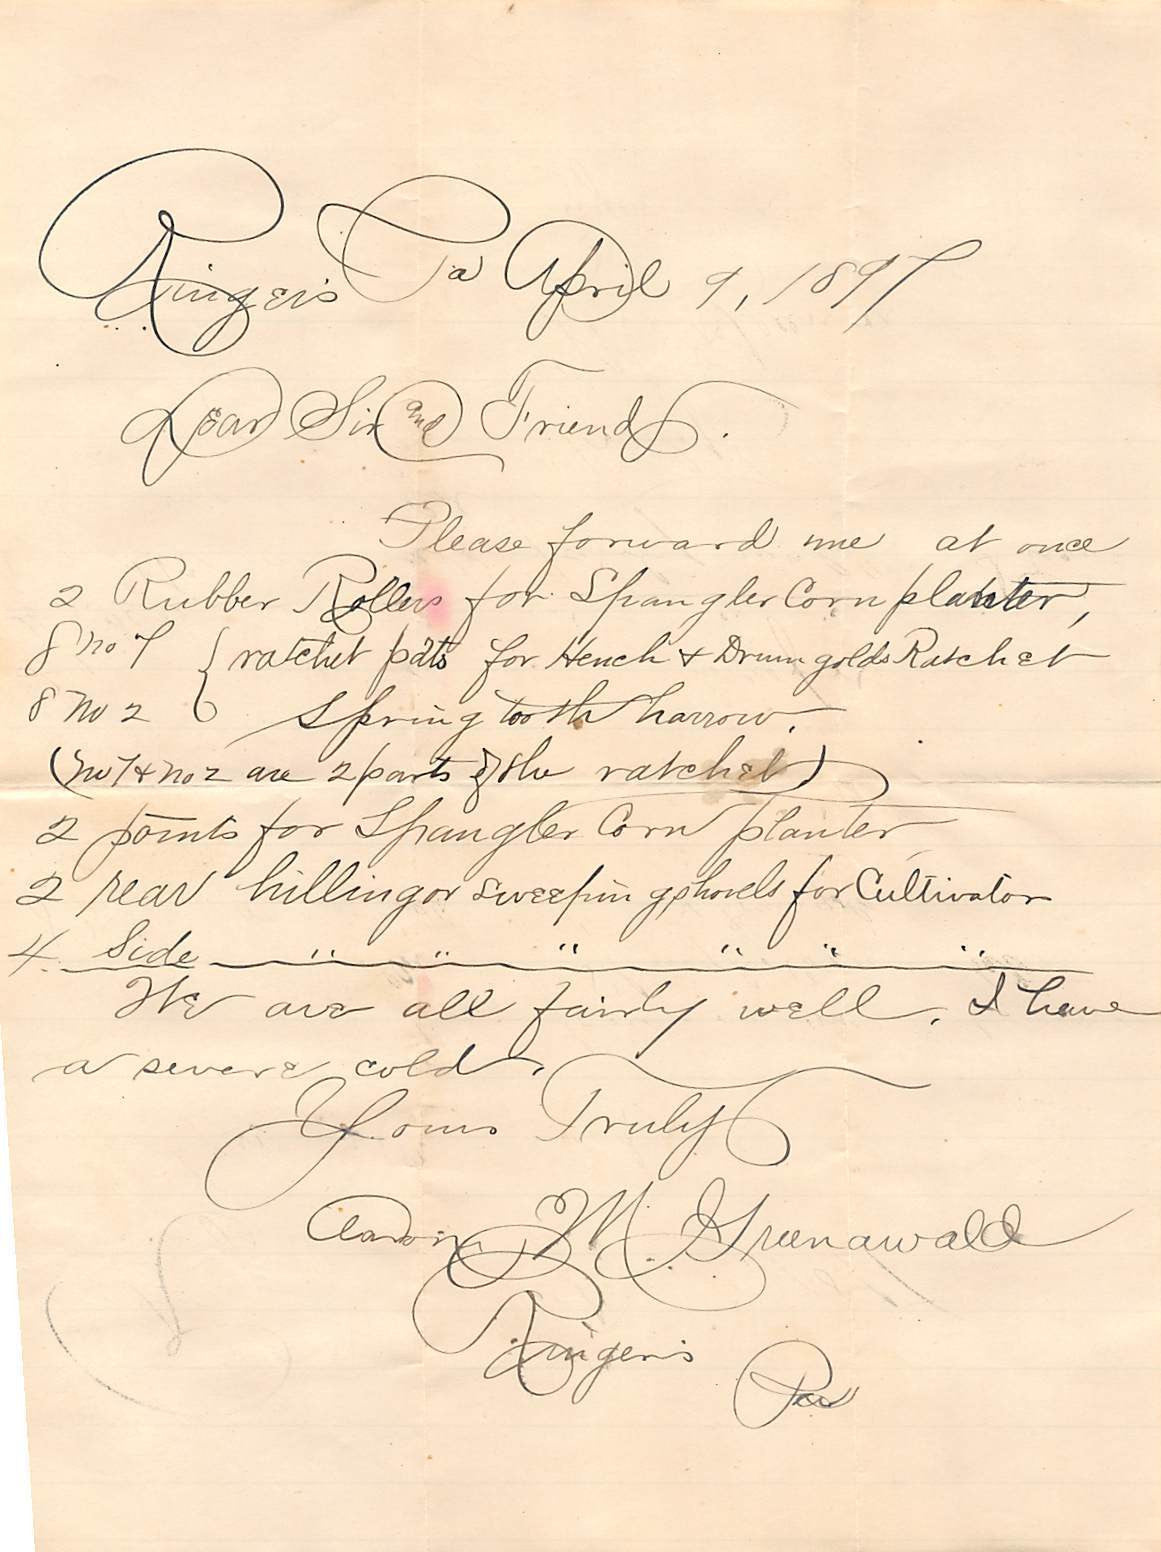 Ringer's Pa April 9, 1897
Dear Sir and Friend.
Please forward me at once
2 Rubber Rollers for Spangler Corn planter,
8 no 7 { ratchet pats for Hench & Drumgolds Ratchet
8 no 2 spring tooth harrow.
(no 7 & no 2 are 2 parts of the ratchet)
2 points for Spangler Corn planter
2 rear hilling or sweeping shovels for Cultivator
4 Side " " " " " "
We are all fairly well. I have
a severe cold.
Yours Truly
Aaron M. Greenawald
Ringer's
Pa